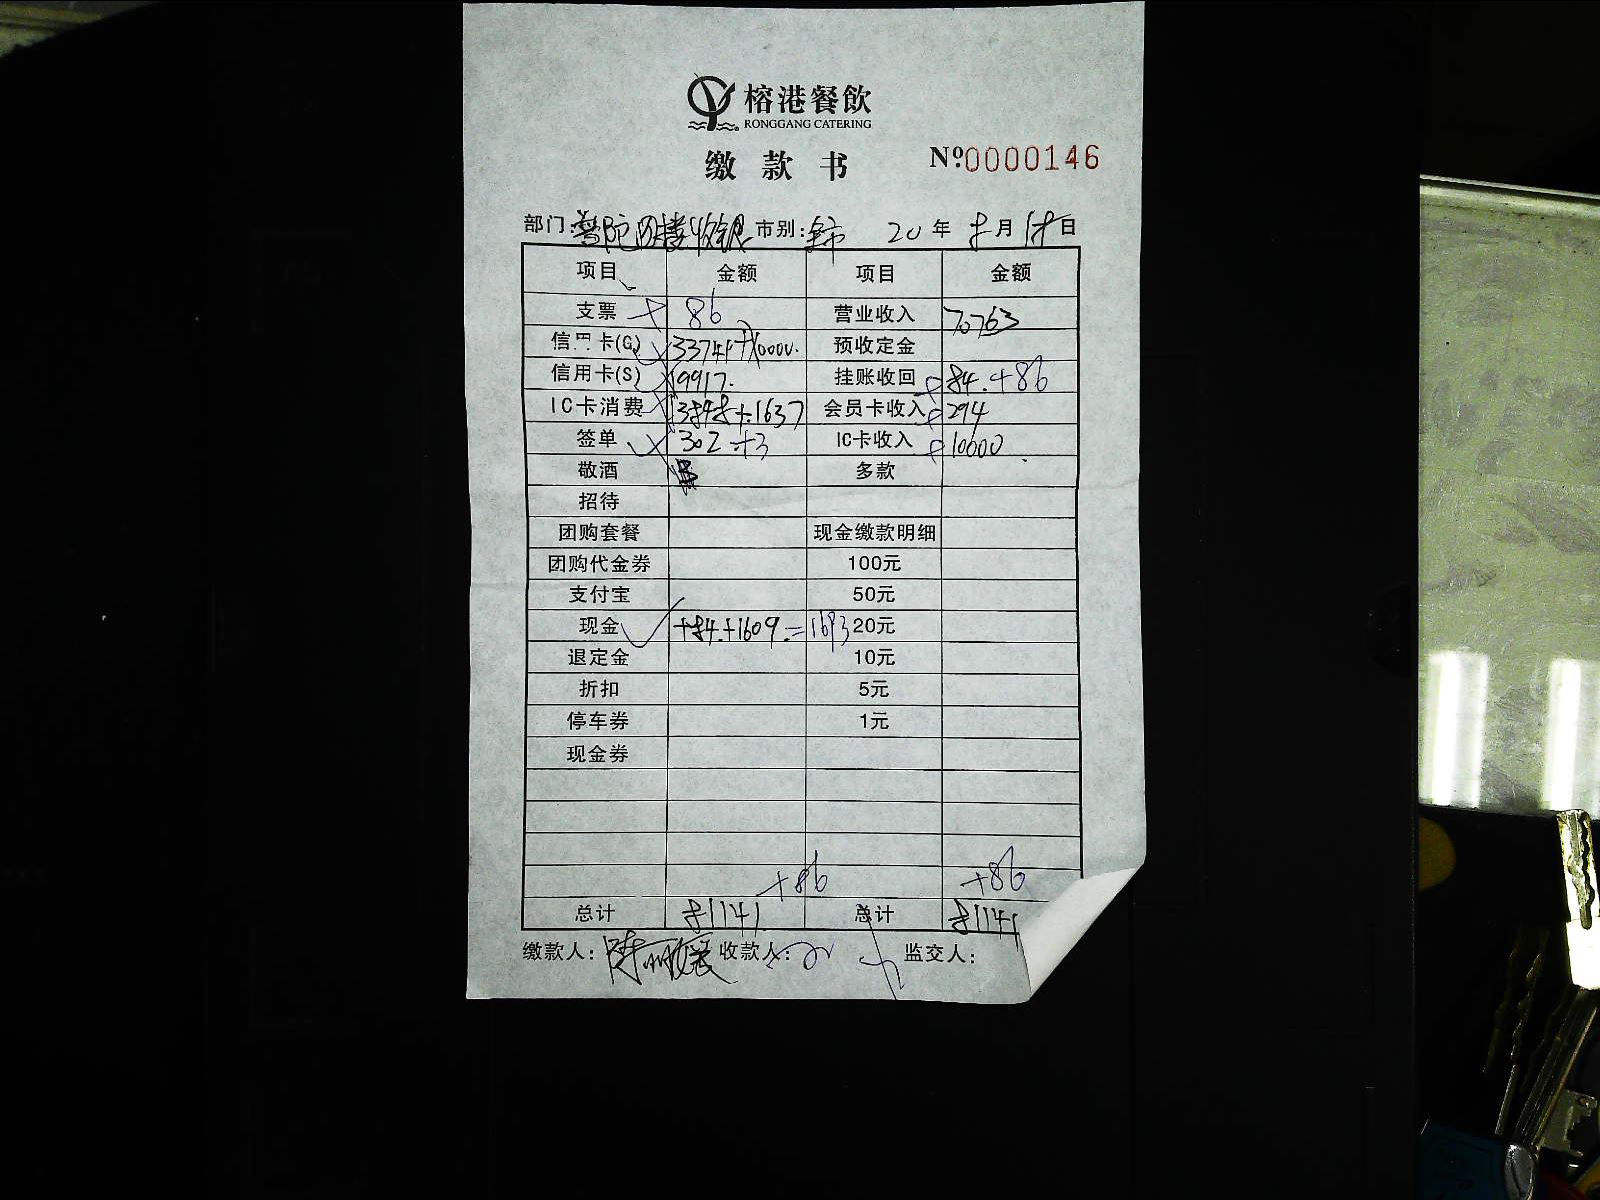 榕港餐飲
RONGGANG CATERING
缴款书 №0000146
部门:普陀四楼收银 市别:全市 20年8月18日
项目 金额 项目 金额
支票 +86 营业收入 70763
信用卡(G) 33741+10000. 预收定金
信用卡(S) 19917. 挂账收回 84.+86
IC卡消费 13848+1637 会员卡收入 294
签单 302+3 IC卡收入 10000
敬酒 多款
招待
团购套餐 现金缴款明细
团购代金券 100元
支付宝 50元
现金 +84.+1609.=1693 20元
退定金 10元
折扣 5元
停车券 1元
现金券
+86 +86
总计 81141 总计 81141
缴款人: 收款人: 监交人: